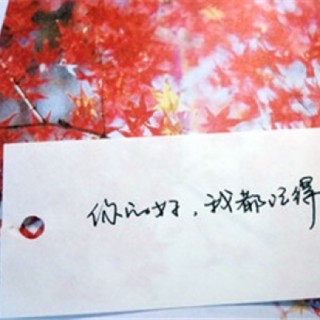 你的好，我都记得